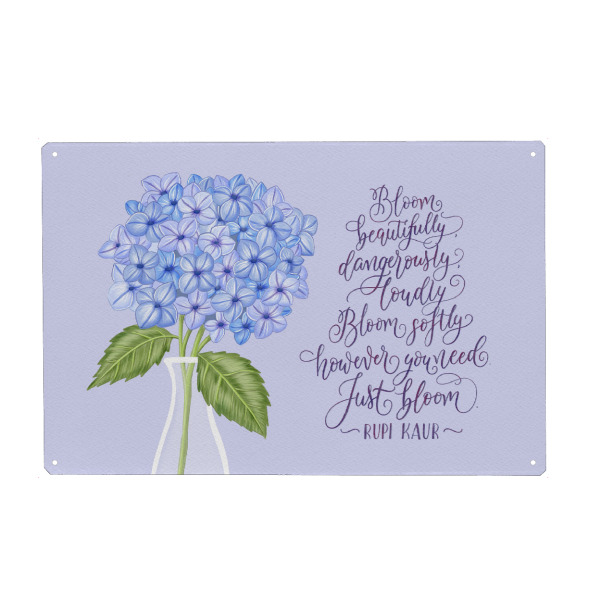 Bloom
beautifully,
dangerously,
loudly
Bloom softly
however you need.
Just bloom.
~ RUPI KAUR ~